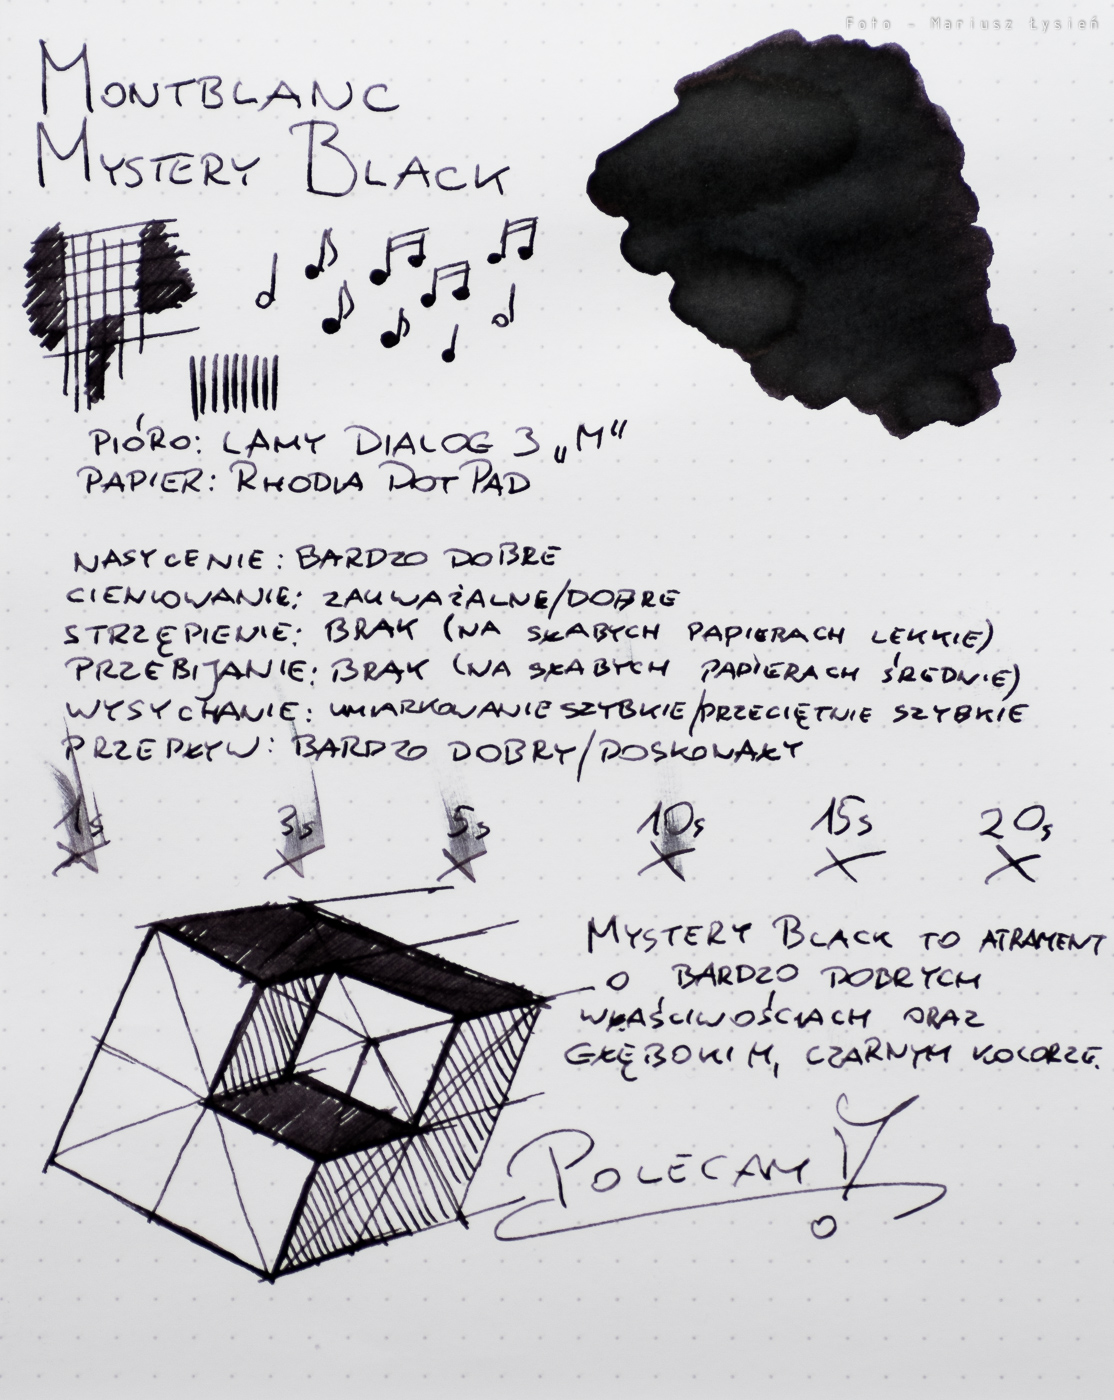 Foto - Mariusz Łysień
MONTBLANC
MYSTERY BLACK
PIÓRO: LAMY DIALOG 3 „M”
PAPIER: RHODIA DOT PAD
NASYCENIE: BARDZO DOBRE
CIENIOWANIE: ZAUWAŻALNE/DOBRE
STRZĘPIENIE: BRAK (NA SŁABYCH PAPIERACH LEKKIE)
PRZEBIJANIE: BRAK (NA SŁABYCH PAPIERACH ŚREDNIE)
WYSYCHANIE: UMIARKOWANIE SZYBKIE/PRZECIĘTNIE SZYBKIE
PRZEPŁYW: BARDZO DOBRY/DOSKONAŁY
1s 3s 5s 10s 15s 20s
MYSTERY BLACK TO ATRAMENT
O BARDZO DOBRYCH
WŁAŚCIWOŚCIACH ORAZ
GŁĘBOKIM, CZARNYM KOLORZE.
POLECAM!